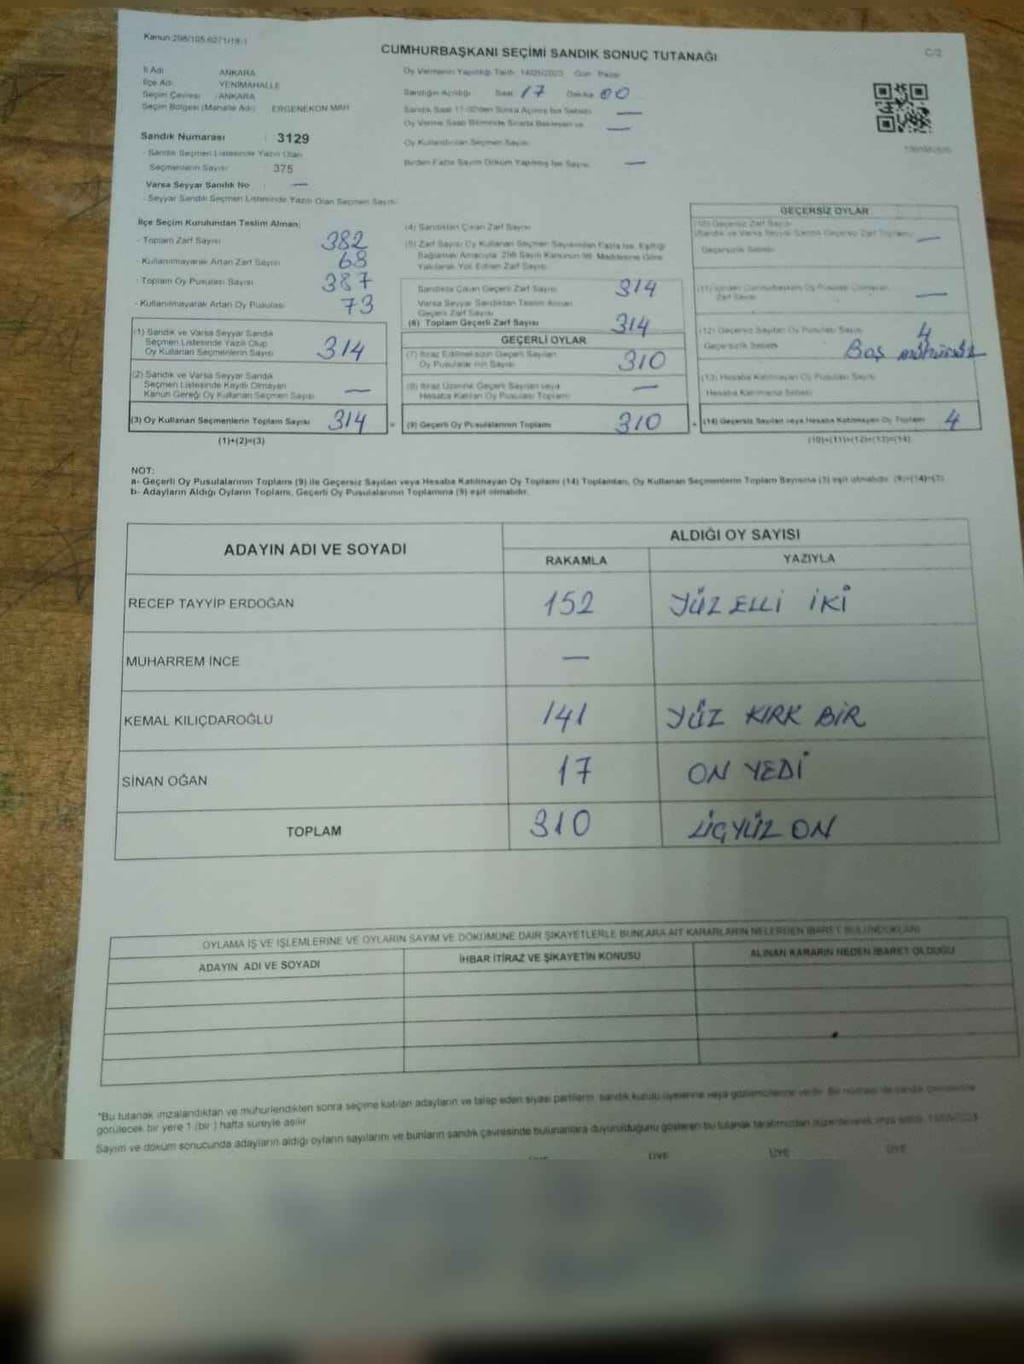 Kanun:298/105,6271/19/1
CUMHURBAŞKANI SEÇİMİ SANDIK SONUÇ TUTANAĞI
C/2
İl Adı ANKARA
İlçe Adı YENİMAHALLE
Seçim Çevresi ANKARA
Seçim Bölgesi (Mahalle Adı) ERGENEKON MAH
Sandık Numarası : 3129
- Sandık Seçmen Listesinde Yazılı Olan
Seçmenlerin Sayısı 375
Varsa Seyyar Sandık No —
- Seyyar Sandık Seçmen Listesinde Yazılı Olan Seçmen Sayısı
Oy Vermenin Yapıldığı Tarih 14/05/2023 Gün Pazar
Sandığın Açıldığı Saat 17 Dakika 00
Oy Kullandırılan Seçmen Sayısı
Birden Fazla Sayım Döküm Yapılmış İse Sayısı —
İlçe Seçim Kurulundan Teslim Alınan;
- Toplam Zarf Sayısı 382
- Kullanılmayarak Artan Zarf Sayısı 68
- Toplam Oy Pusulası Sayısı 387
- Kullanılmayarak Artan Oy Pusulası 73
(1) Sandık ve Varsa Seyyar Sandık
Seçmen Listesinde Yazılı Olup
Oy Kullanan Seçmenlerin Sayısı 314
(2) Sandık ve Varsa Seyyar Sandık
Seçmen Listesinde Kayıtlı Olmayan
Kanun Gereği Oy Kullanan Seçmen Sayısı —
(3) Oy Kullanan Seçmenlerin Toplam Sayısı 314
(1)+(2)=(3)
(4) Sandıktan Çıkan Zarf Sayısı
(5) Zarf Sayısı Oy Kullanan Seçmen Sayısından Fazla İse, Eşitliği
Sağlamak Amacıyla 298 Sayılı Kanunun 98. Maddesine Göre
Yakılarak Yok Edilen Zarf Sayısı
Sandıkta Çıkan Geçerli Zarf Sayısı 314
Varsa Seyyar Sandıktan Teslim Alınan
Geçerli Zarf Sayısı
(6) Toplam Geçerli Zarf Sayısı 314
GEÇERLİ OYLAR
(7) İtiraz Edilmeksizin Geçerli Sayılan
Oy Pusulalarının Sayısı 310
(8) İtiraz Üzerine Geçerli Sayılan veya
Hesaba Katılan Oy Pusulası Toplamı —
(9) Geçerli Oy Pusulalarının Toplamı 310
GEÇERSİZ OYLAR
(10) Geçersiz Zarf Sayısı
Geçersizlik Sebebi
Zarf Sayısı —
(12) Geçersiz Sayılan Oy Pusulası Sayısı 4
Geçersizlik Sebebi Boş mühürsüz
(13) Hesaba Katılmayan Oy Pusulası Sayısı
Hesaba Katılmama Sebebi
(14) Geçersiz Sayılan veya Hesaba Katılmayan Oy Toplamı 4
(10)+(11)+(12)+(13)=(14)
NOT:
a- Geçerli Oy Pusulalarının Toplamı (9) ile Geçersiz Sayılan veya Hesaba Katılmayan Oy Toplamı (14) Toplamları, Oy Kullanan Seçmenlerin Toplam Sayısına (3) eşit olmalıdır. (9)+(14)=(3)
b- Adayların Aldığı Oyların Toplamı, Geçerli Oy Pusulalarının Toplamına (9) eşit olmalıdır.
ADAYIN ADI VE SOYADI
ALDIĞI OY SAYISI
RAKAMLA YAZIYLA
RECEP TAYYİP ERDOĞAN 152 YÜZ ELLİ İKİ
MUHARREM İNCE —
KEMAL KILIÇDAROĞLU 141 YÜZ KIRK BİR
SİNAN OĞAN 17 ON YEDİ
TOPLAM 310 ÜÇYÜZ ON
OYLAMA İŞ VE İŞLEMLERİNE VE OYLARIN SAYIM VE DÖKÜMÜNE DAİR ŞİKAYETLERLE BUNLARA AİT KARARLARIN NELERDEN İBARET BULUNDUKLARI
ADAYIN ADI VE SOYADI İHBAR İTİRAZ VE ŞİKAYETİN KONUSU ALINAN KARARIN NEDEN İBARET OLDUĞU
*Bu tutanak imzalandıktan ve mühürlendikten sonra seçime katılan adayların ve talep eden siyasi partilerin sandık kurulu üyelerine veya gözlemcilerine verilir. Bir nüshası da sandık çevresinde
görülecek bir yere 1 (bir) hafta süreyle asılır
Sayım ve döküm sonucunda adayların aldığı oyların sayılarını ve bunların sandık çevresinde bulunanlara duyurulduğunu gösteren bu tutanak tarafımızdan
ÜYE ÜYE ÜYE ÜYE